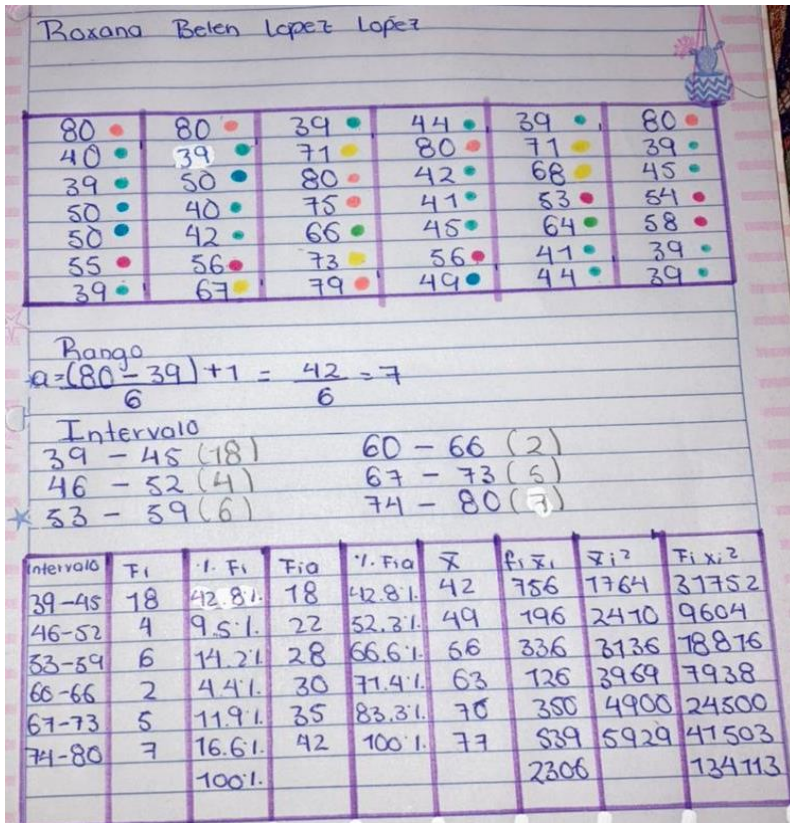 Roxana Belen Lopez Lopez
80 80 39 44 39 80
40 39 71 80 71 39
39 50 80 42 68 45
50 40 75 41 53 54
50 42 66 45 64 58
55 56 73 56 41 39
39 67 79 49 44 39
Rango
a=(80-39)+1 = 42 = 7
6 6
Intervalo
39 - 45 (18) 60 - 66 (2)
46 - 52 (4) 67 - 73 (5)
53 - 59 (6) 74 - 80 (7)
Intervalo Fi %. Fi Fia %. Fia x̄ fi x̄i x̄i² Fi xi²
39-45 18 42.8% 18 42.8% 42 756 1764 31752
46-52 4 9.5% 22 52.3% 49 196 2410 9604
53-59 6 14.2% 28 66.6% 56 336 3136 18816
60-66 2 4.4% 30 71.4% 63 126 3969 7938
67-73 5 11.9% 35 83.3% 70 350 4900 24500
74-80 7 16.6% 42 100% 77 539 5929 41503
100% 2306 134113